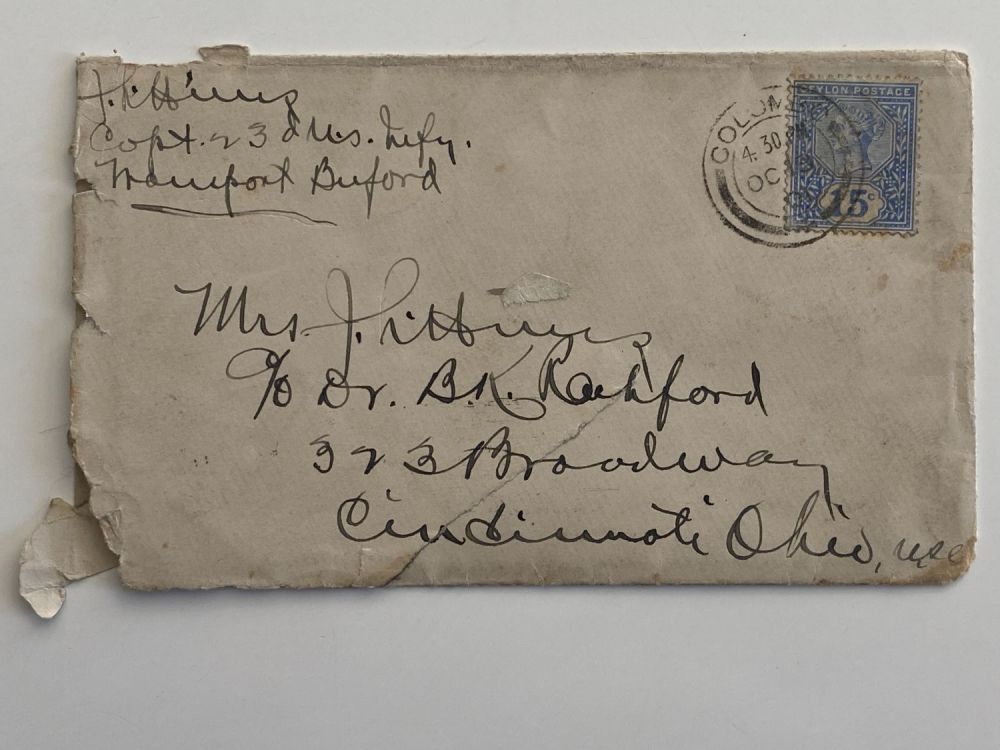 Capt. 23d U.S. Infy.
Transport Buford
COLOM
4.30 PM
OC
CEYLON POSTAGE
15c
Mrs. J.
c/o Dr. B.K. Rachford
323 Broadway
Cincinnati Ohio, USA